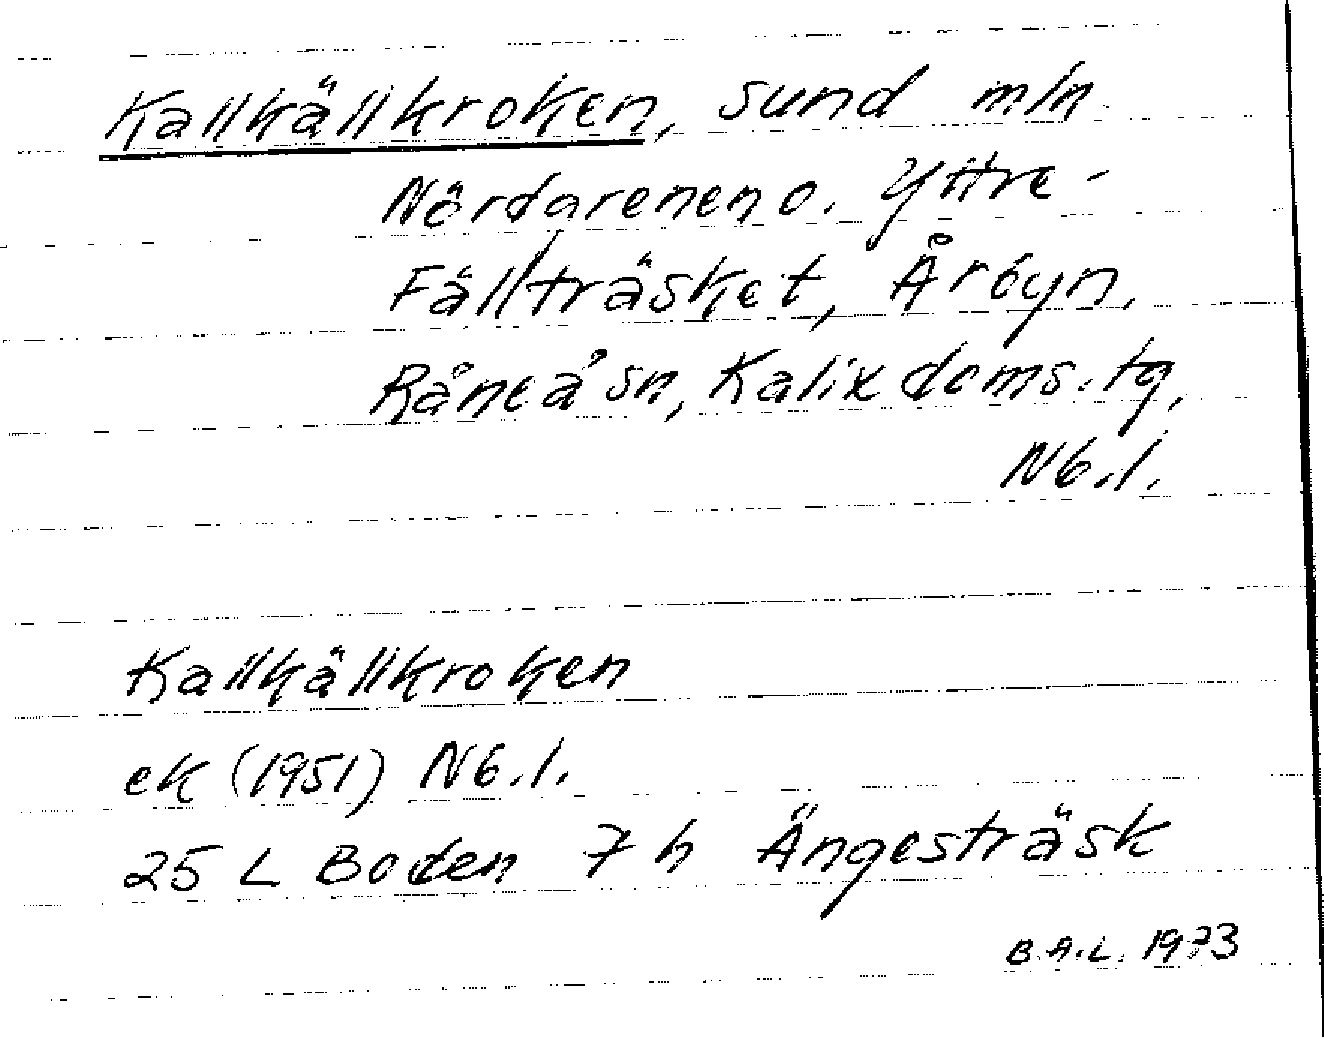 Kallkällkroken, sund mln.
Nördarenen o. Yttre-
Fällträsket, Årbyn,
Råneå sn, Kalix doms.tg,
Nb.l.
Kallkällkroken
ek (1951) Nb.l.
25 L Boden 7 h Ängesträsk
B.A.L. 1973